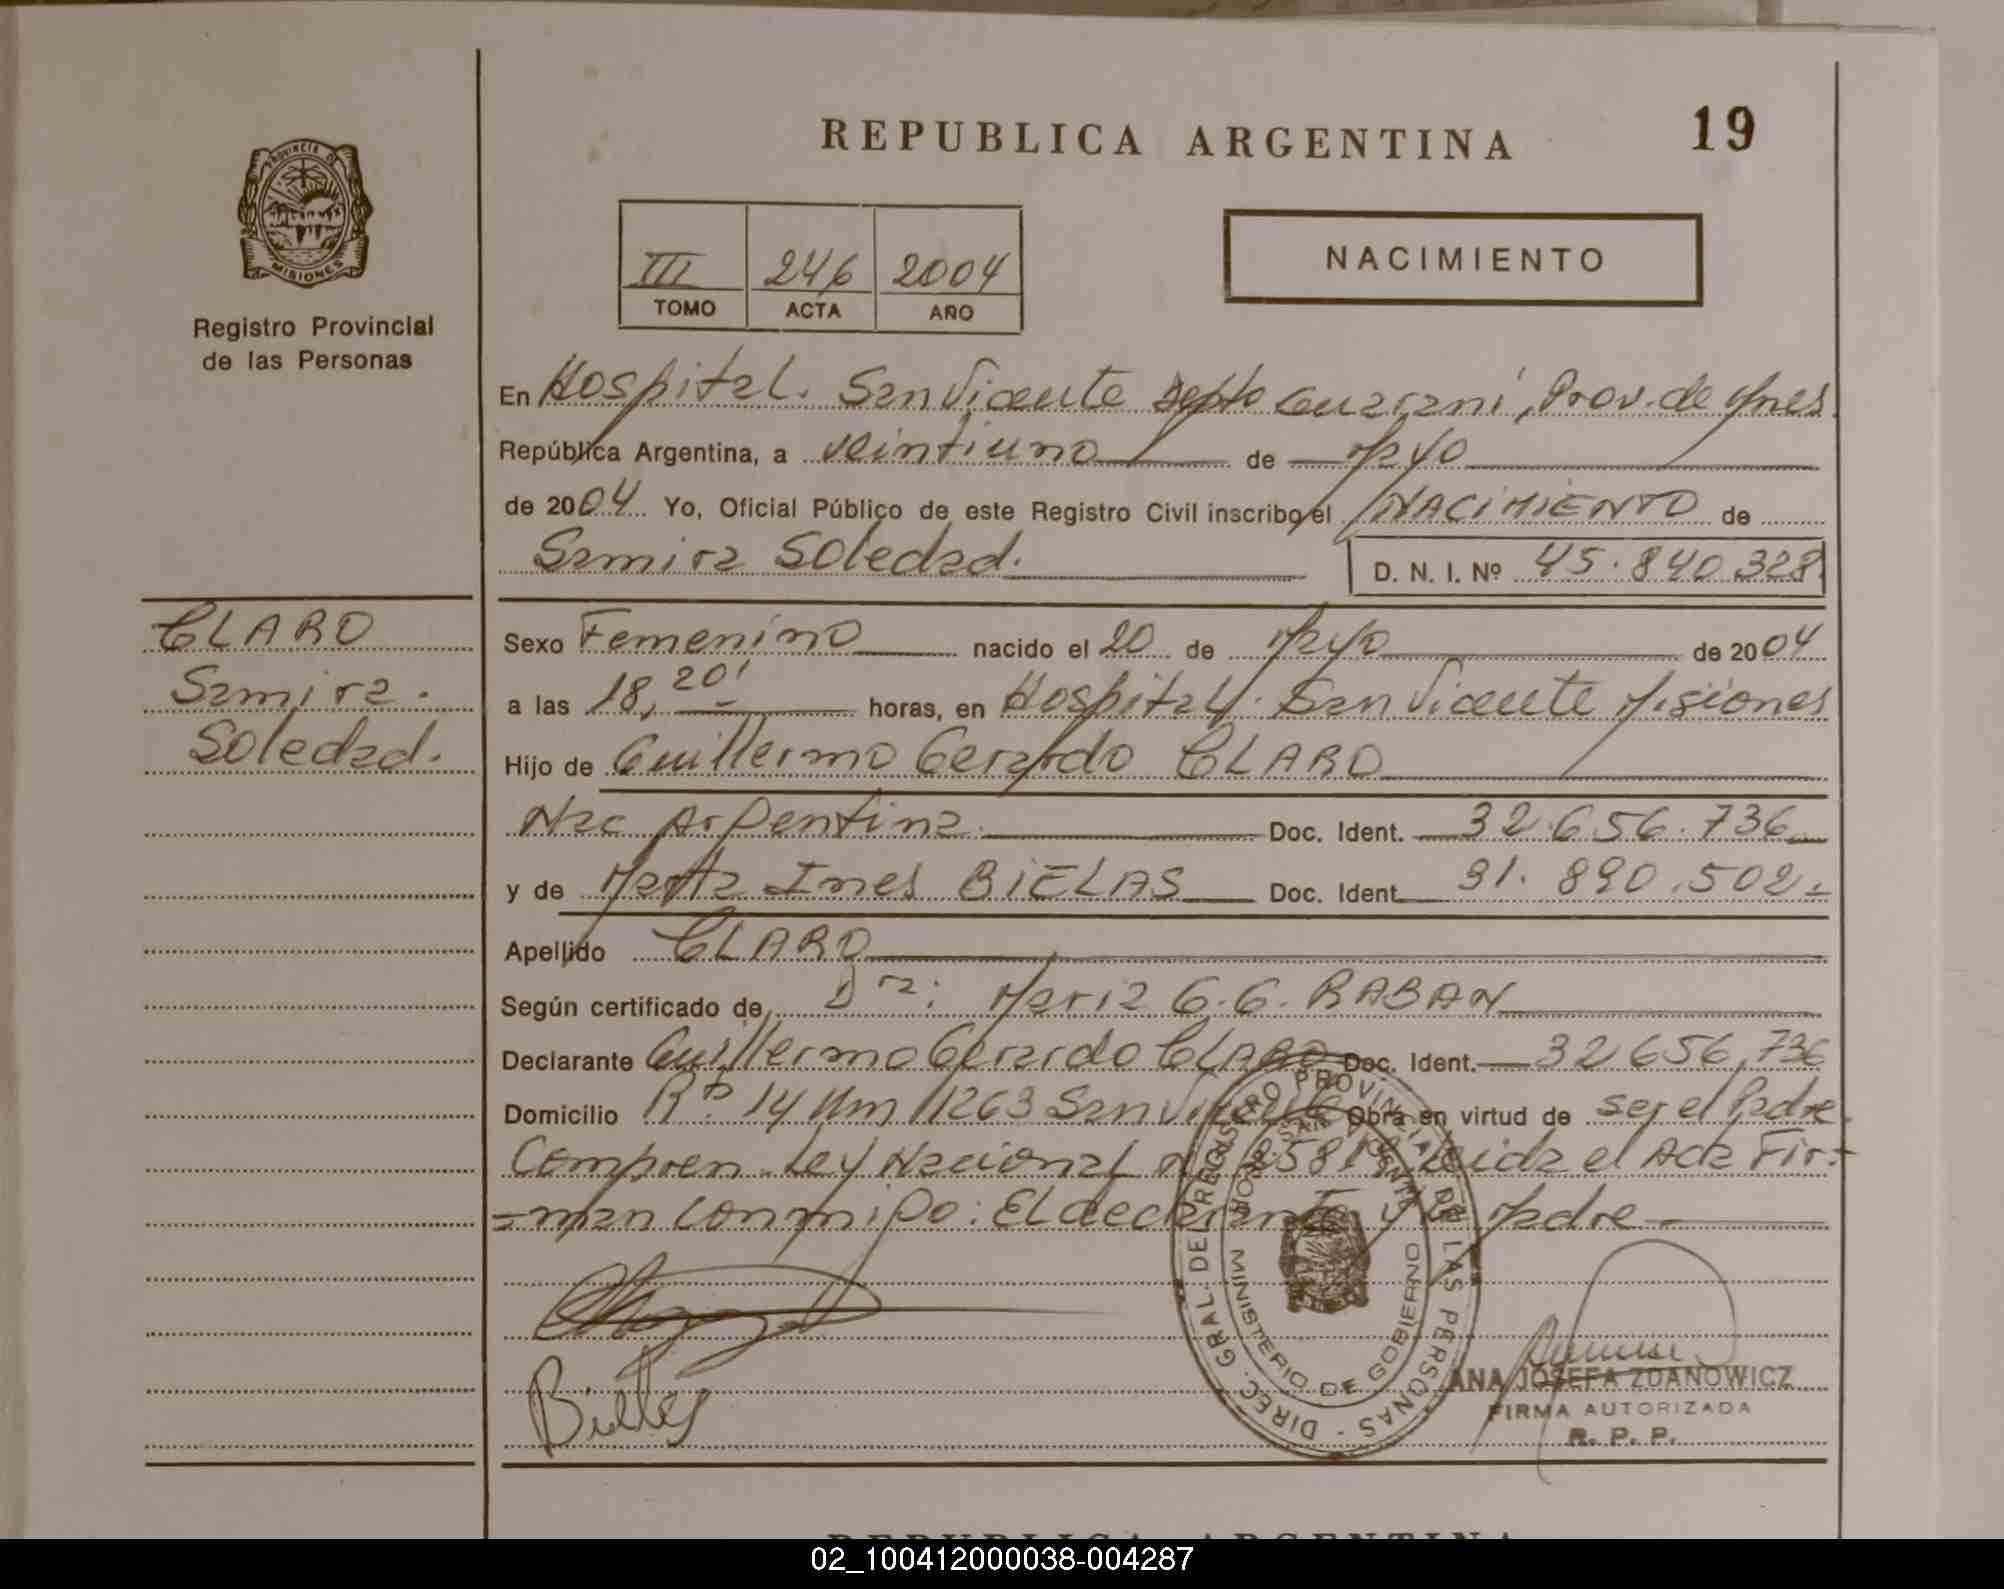 REPUBLICA ARGENTINA
19
PROVINCIA DE
MISIONES
Registro Provincial
de las Personas
III 246 2004
TOMO ACTA AÑO
NACIMIENTO
En Hospital. San Vicente depto Guaraní, Prov. de Mnes.
República Argentina, a veintiuno de Mayo
de 2004 Yo, Oficial Público de este Registro Civil inscribo el NACIMIENTO de
Samira Soledad. D. N. I. Nº 45.840.328
CLARO
Samira.
Soledad.
Sexo Femenino nacido el 20 de Mayo de 2004
a las 18,20' horas, en Hospital. San Vicente Misiones
Hijo de Guillermo Gerardo CLARO
Nac Argentina. Doc. Ident. 32.656.736
y de Marta Ines BIELAS Doc. Ident. 31.890.502.
Apellido CLARO
Según certificado de Dra: Maria G.G. RABAN
Declarante Guillermo Gerardo CLARO Doc. Ident. 32656,736
Domicilio Rta. 14 Km 1263 San Vicente Obra en virtud de ser el Padre.
Compren. Ley Nacional Leida el Acta Fir-
=man conmigo: El declarante y Madre
Bielas
DIREC. GRAL. DEL REGISTRO PROVINCIAL DE LAS PERSONAS -
HOSP. SAN VICENTE
MINISTERIO DE GOBIERNO
ANA JOSEFA ZDANOWICZ
FIRMA AUTORIZADA
R. P. P.
REPUBLICA ARGENTINA
02_100412000038-004287